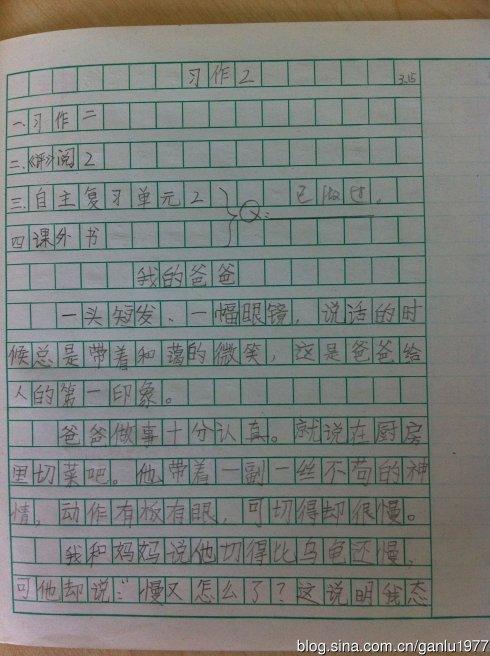 习作2 3.15
一.习作二
二.《评》阅2
三.自主复习单元2 Q: 已做过.
四课外书
我的爸爸
一头短发、一幅眼镜，说话的时
候总是带着和蔼的微笑，这是爸爸给
人的第一印象。
爸爸做事十分认真。就说在厨房
里切菜吧。他带着一副一丝不苟的神
情，动作有板有眼，可切得却很慢。
我和妈妈说他切得比乌龟还慢，
可他却说：“慢又怎么了？这说明我态
blog.sina.com.cn/ganlu1977